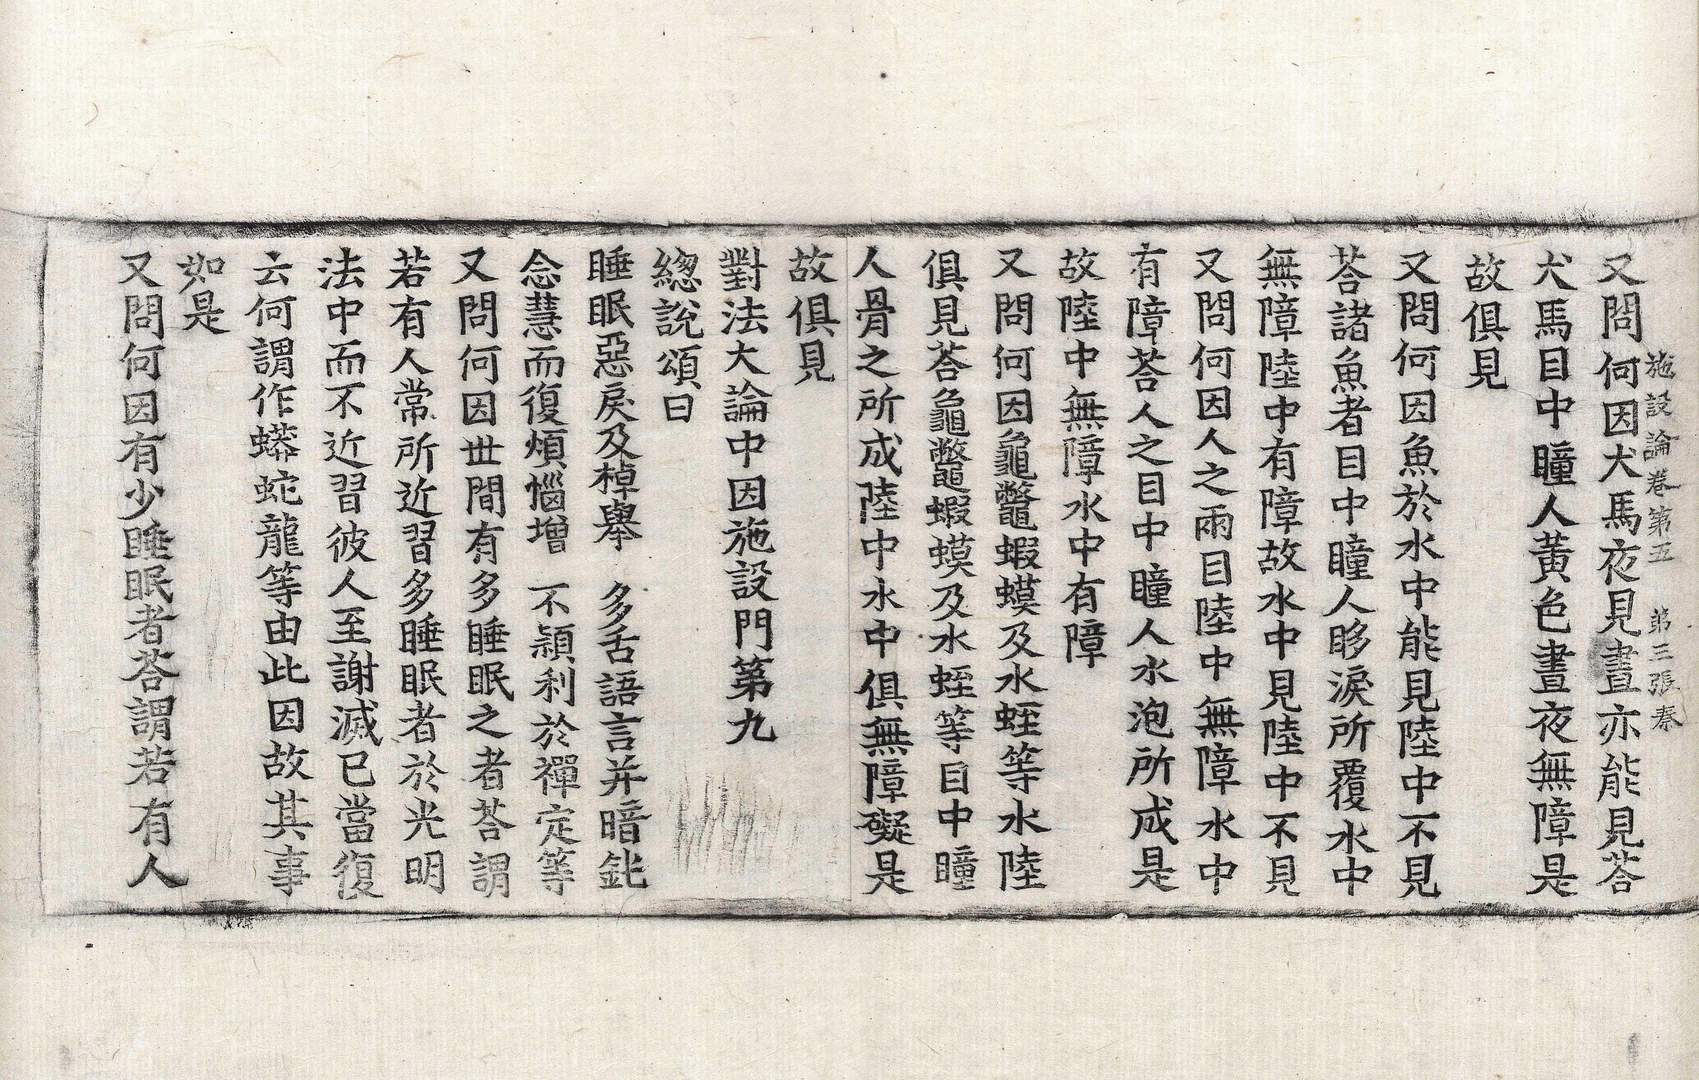 施設論卷第五 第三張秦
又問何因犬馬夜見晝亦能見荅
犬馬目中瞳人黃色晝夜無障是
故俱見
又問何因魚於水中能見陸中不見
荅諸魚者目中瞳人眵淚所覆水中
無障陸中有障故水中見陸中不見
又問何因人之兩目陸中無障水中
有障荅人之目中瞳人水泡所成是
故陸中無障水中有障
又問何因龜鼈蝦蟆及水蛭等水陸
俱見荅龜鼈蝦蟆及水蛭等目中瞳
人骨之所成陸中水中俱無障礙是
故俱見
對法大論中因施設門第九
總說頌曰
睡眠惡戾及棹舉 多舌語言并暗鈍
念慧而復煩惱增 不穎利於禪定等
又問何因世間有多睡眠之者荅謂
若有人常所近習多睡眠者於光明
法中而不近習彼人至謝滅已當復
云何謂作蟒蛇龍等由此因故其事
如是
又問何因有少睡眠者荅謂若有人